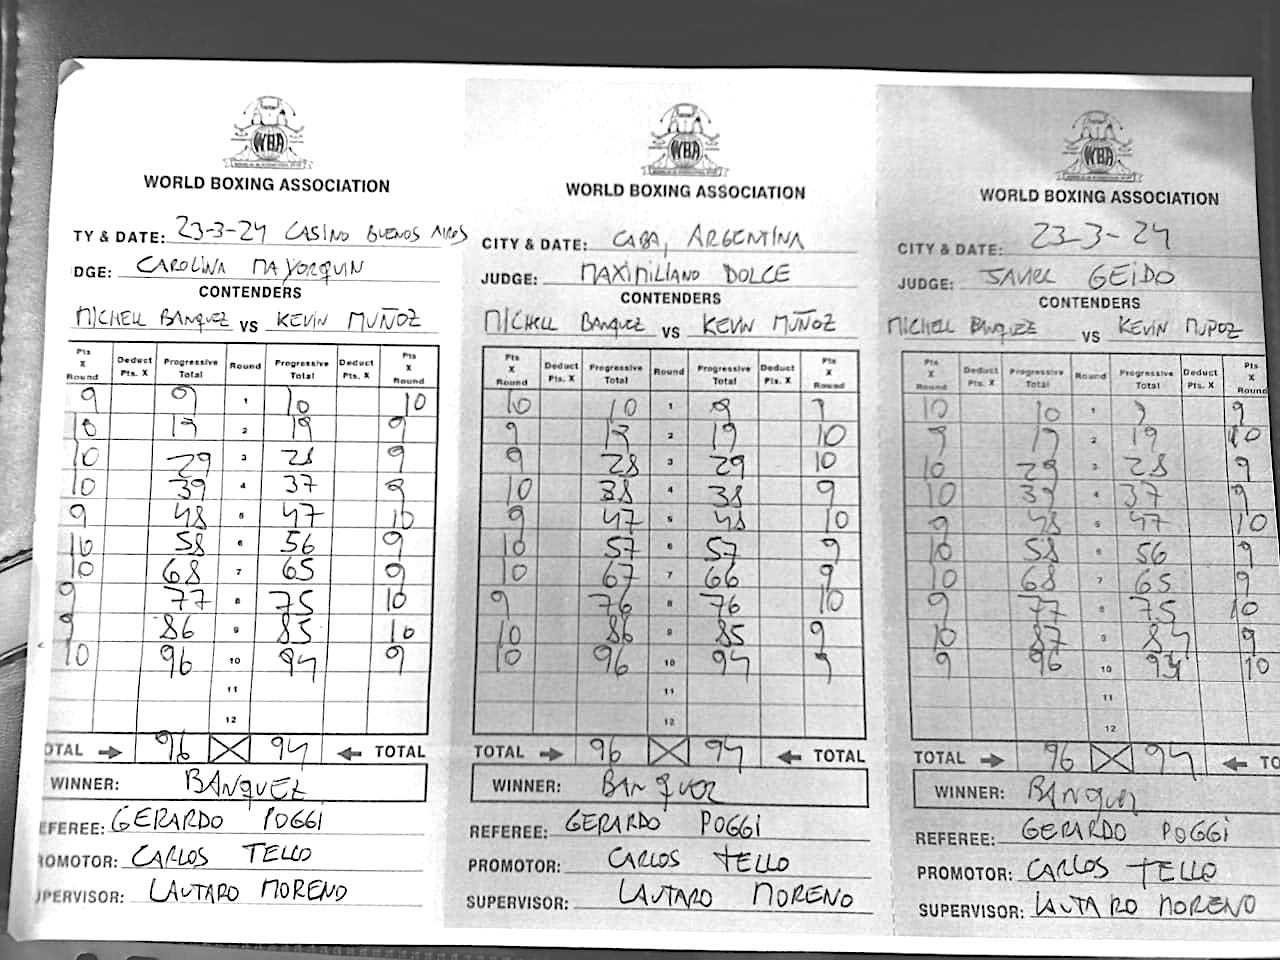 WBA
WORLD BOXING ASSOCIATION
TY & DATE: 23-3-24 CASINO BUENOS AIRES
DGE: CAROLINA MAYORQUIN
CONTENDERS
MICHELL BANQUEZ VS KEVIN MUÑOZ
Pts X Round Deduct Pts. X Progressive Total Round Progressive Total Deduct Pts. X Pts X Round
9 9 1 10 10
10 19 2 19 9
10 29 3 28 9
10 39 4 37 9
9 48 5 47 10
10 58 6 56 9
10 68 7 65 9
9 77 8 75 10
9 86 9 85 10
10 96 10 94 9
11
12
OTAL 96 94 TOTAL
WINNER: BANQUEZ
EFEREE: GERARDO POGGI
OMOTOR: CARLOS TELLO
PERVISOR: LAUTARO MORENO
WBA
WORLD BOXING ASSOCIATION
CITY & DATE: CABA, ARGENTINA
JUDGE: MAXIMILIANO DOLCE
CONTENDERS
MICHELL BANQUEZ VS KEVIN MUÑOZ
Pts X Round Deduct Pts. X Progressive Total Round Progressive Total Deduct Pts. X Pts X Round
10 10 1 9 9
9 19 2 19 10
9 28 3 29 10
10 38 4 38 9
9 47 5 48 10
10 57 6 57 9
10 67 7 66 9
9 76 8 76 10
10 86 9 85 9
10 96 10 94 9
11
12
TOTAL 96 94 TOTAL
WINNER: BANQUEZ
REFEREE: GERARDO POGGI
PROMOTOR: CARLOS TELLO
SUPERVISOR: LAUTARO MORENO
WBA
WORLD BOXING ASSOCIATION
CITY & DATE: 23-3-24
JUDGE: JAVIER GEIDO
CONTENDERS
MICHELL BANQUEZ VS KEVIN MUÑOZ
Pts X Round Deduct Pts. X Progressive Total Round Progressive Total Deduct Pts. X Pts X Round
10 10 1 9 9
9 19 2 19 10
10 29 3 28 9
10 39 4 37 9
9 48 5 47 10
10 58 6 56 9
10 68 7 65 9
9 77 8 75 10
10 87 9 84 9
9 96 10 94 10
11
12
TOTAL 96 94 TO
WINNER: BANQUEZ
REFEREE: GERARDO POGGI
PROMOTOR: CARLOS TELLO
SUPERVISOR: LAUTARO MORENO